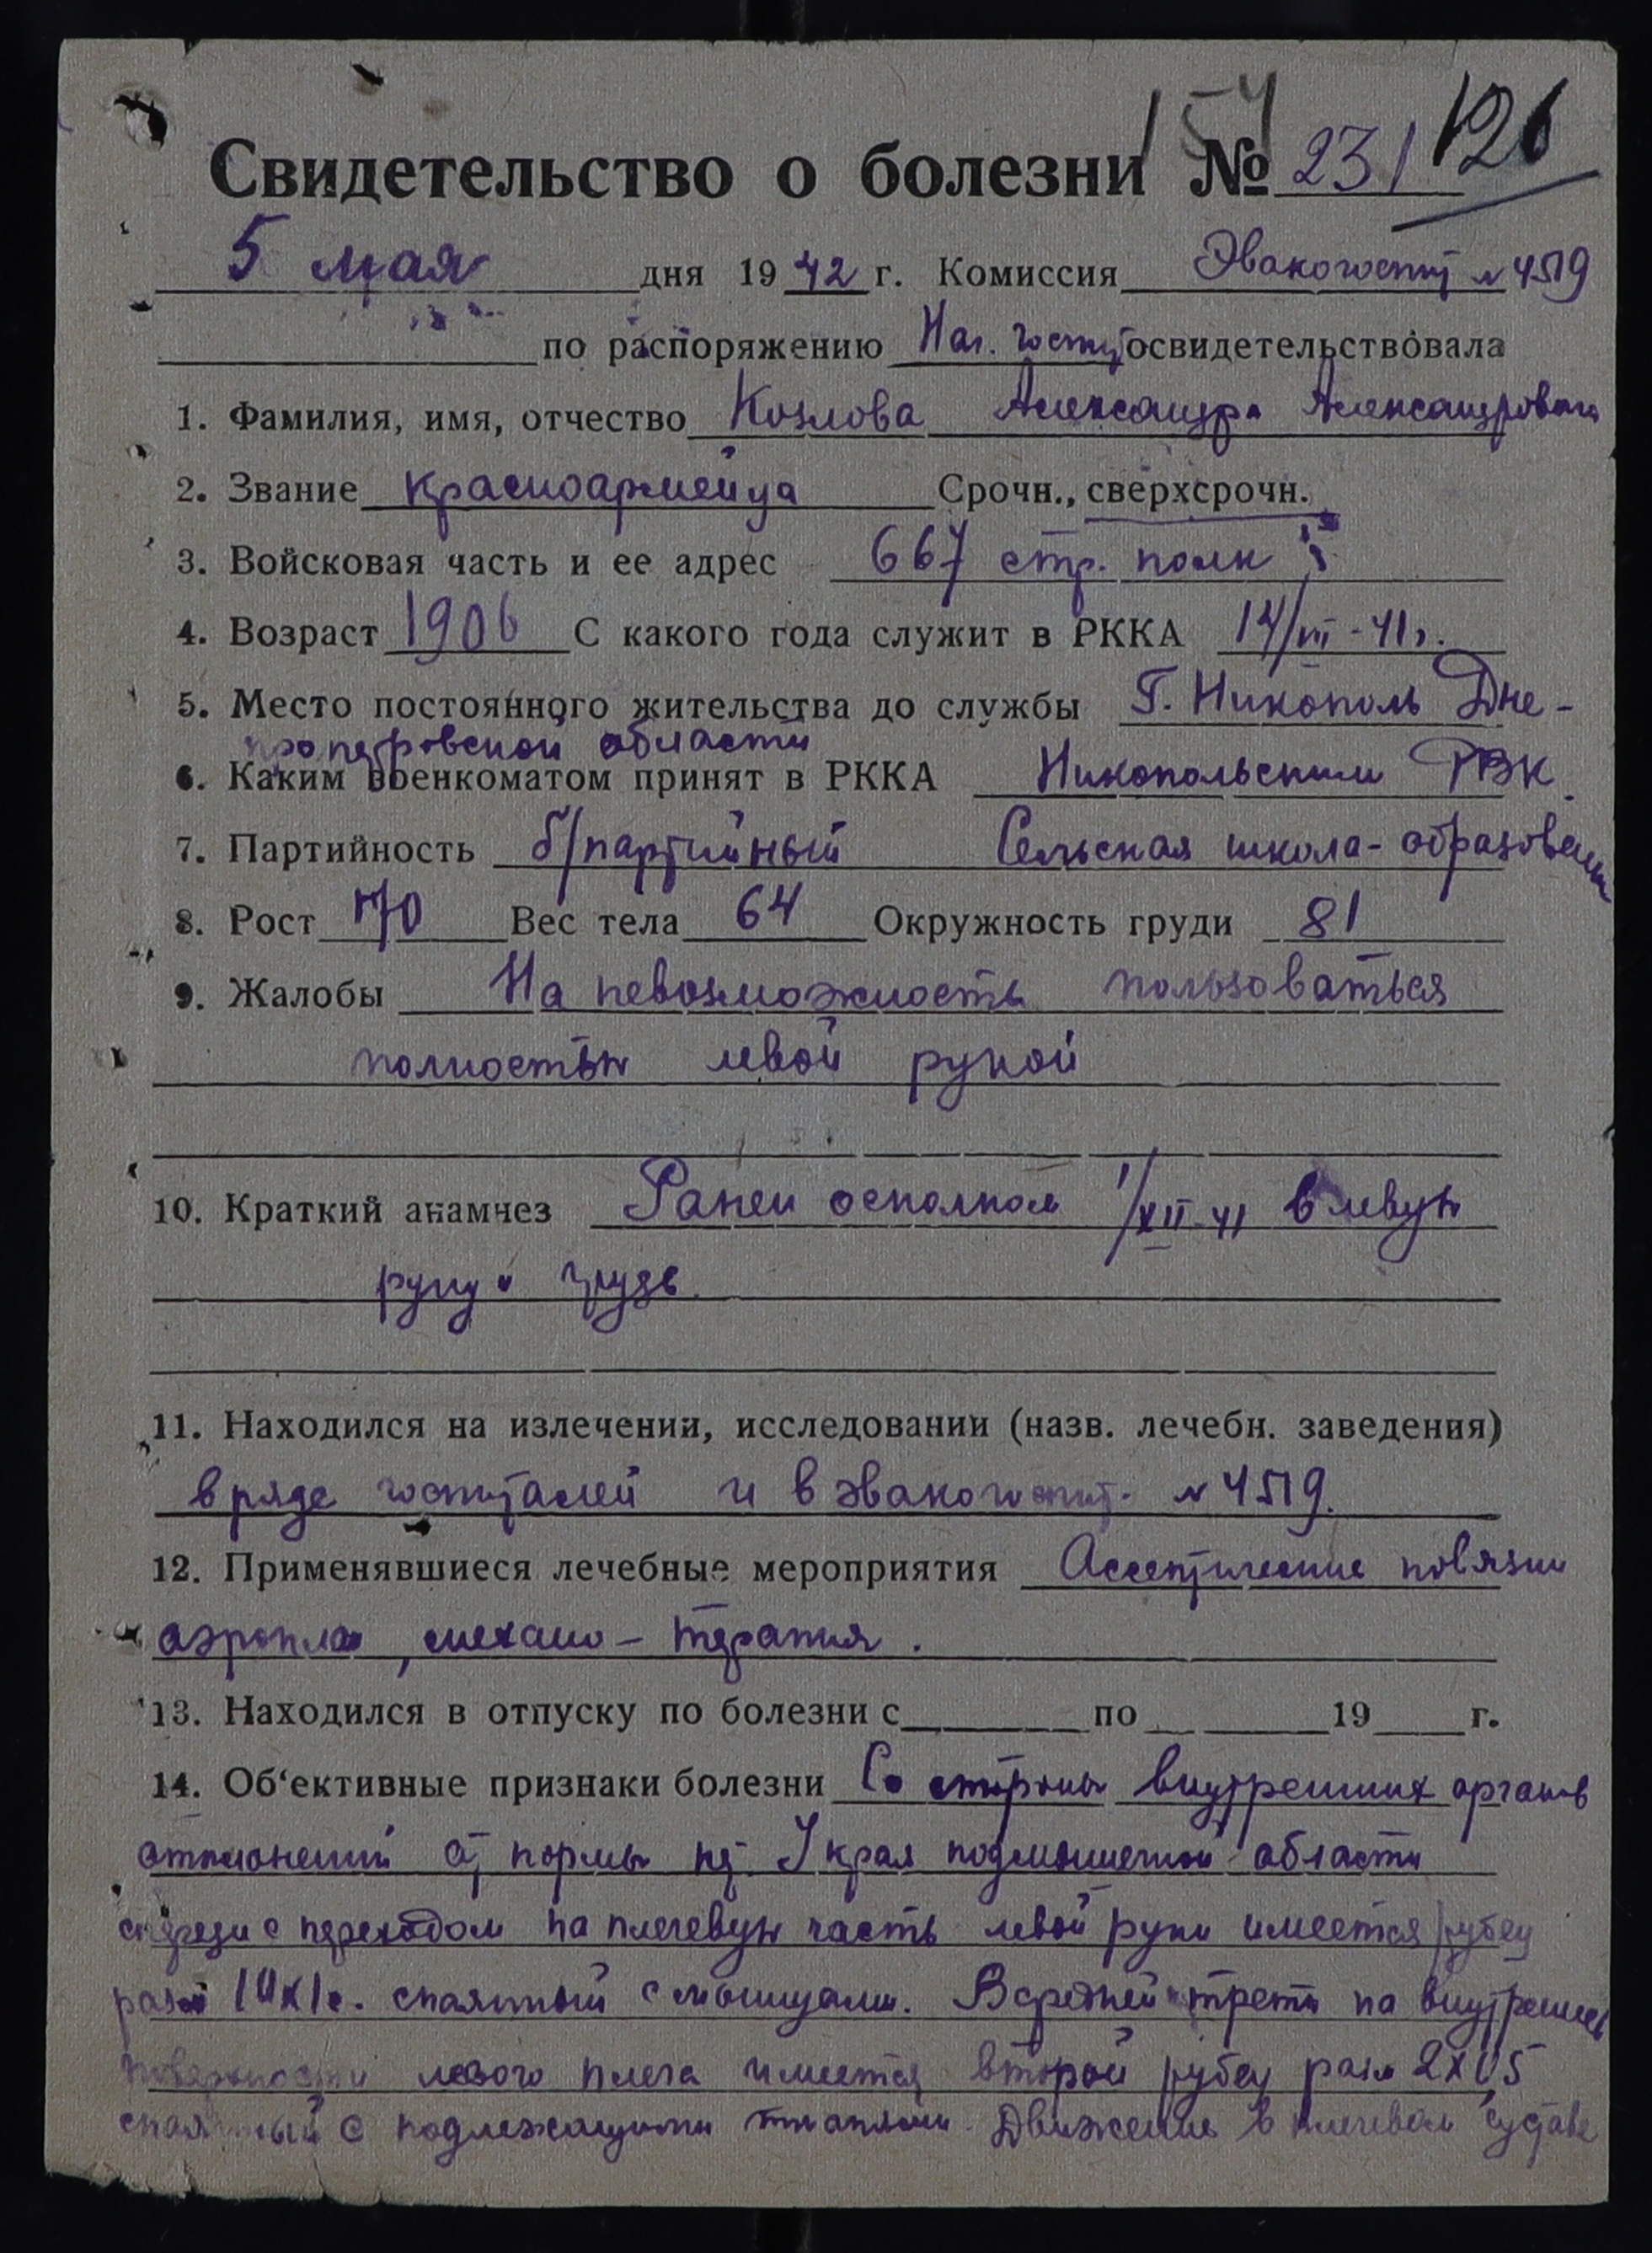 154
126
Свидетельство о болезни № 231
5 мая дня 1942 г. Комиссия Эвакогоспит N 4519
по распоряжению Нач. госпит освидетельствовала
1. Фамилия, имя, отчество Козлова Александра Александровича
2. Звание красноармейца Срочн., сверхсрочн.
3. Войсковая часть и ее адрес 667 стр. полк
4. Возраст 1906 С какого года служит в РККА 14/VII-41 г.
5. Место постоянного жительства до службы Г. Никополь Дне-
пропетровской области
6. Каким военкоматом принят в РККА Никопольским РВК
7. Партийность б/партийный Сельская школа - образован
8. Рост 170 Вес тела 64 Окружность груди 81
9. Жалобы На невозможность пользоваться
полностью левой рукой
10. Краткий анамнез Ранен осколком 1/XII-41 в левую
руку и грудь
11. Находился на излечении, исследовании (назв. лечебн. заведения)
в ряде госпиталей и в эвакогоспит. N 4519.
12. Применявшиеся лечебные мероприятия Ассептические повязки
аэроплан, механо-терапия.
13. Находился в отпуску по болезни с по 19 г.
14. Об'ективные признаки болезни Со стороны внутренних органов
отклонений от нормы нет. У края подмышечной области
спереди с переходом на плечевую часть левой руки имеется рубец
разм 10х1с. спаянный с мышцами. В средней трети на внутренней
поверхности левого плеча имеется второй рубец разм 2х0,5
спаянный с подлежащими тканями. Движение в плечевом суставе